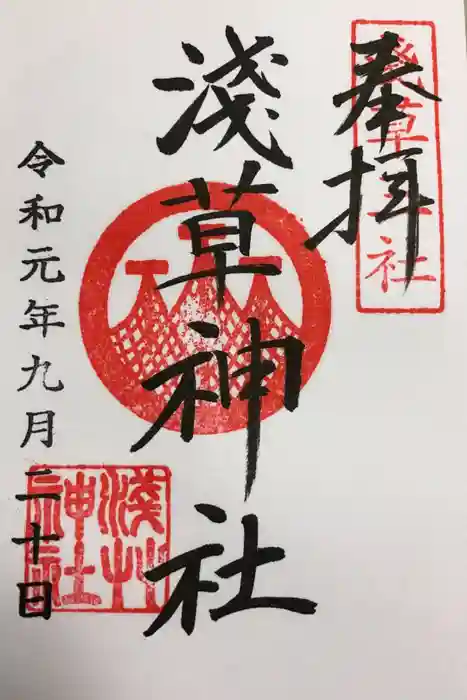 奉拝
浅草神社
淺草神社
令和元年九月二十日
淺草神社